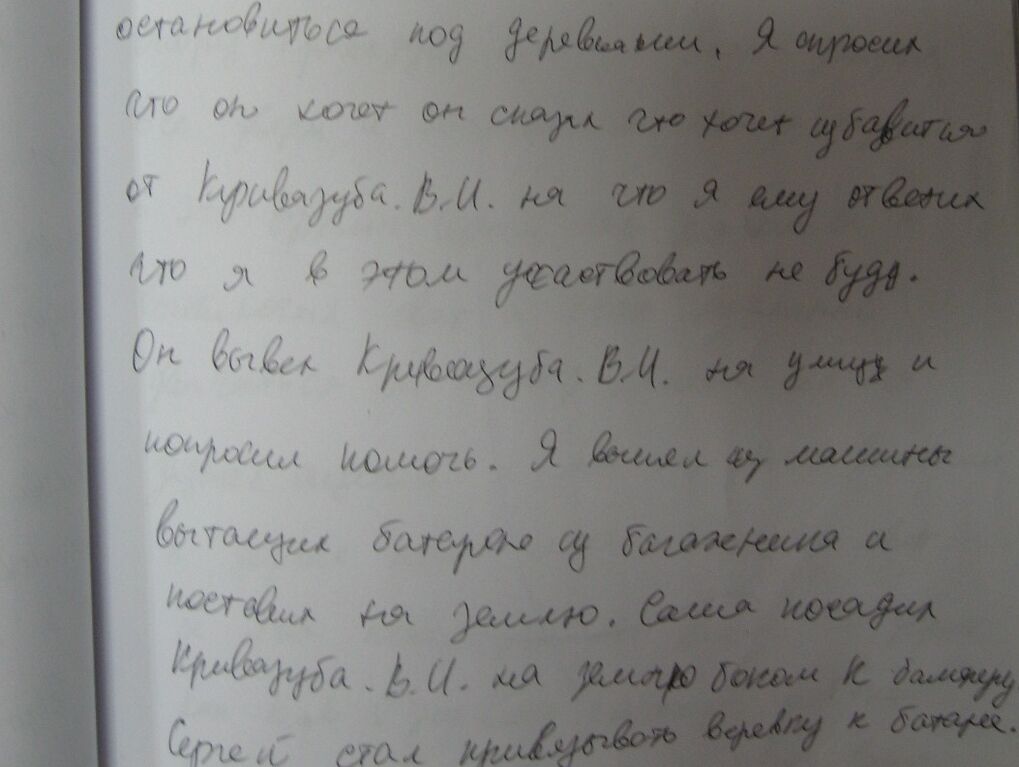 остановиться под деревьями. Я спросил
что он хочет он сказал что хочет избавится
от Кривазуба.В.И. на что я ему ответил
что я в этом участвовать не буду.
Он вывел Кривазуба.В.И. на улицу и
попросил помочь. Я вышел из машины
вытащил батарею из багажника и
поставил на землю. Саша посадил
Кривазуба.В.И. на землю боком к бамперу
Сергей стал привязывать веревку к батарее.